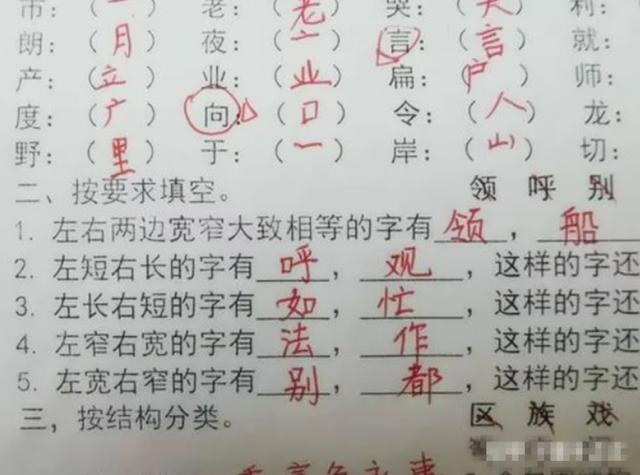 市：（ ） 老：（老） 哭：（犬） 利：
朗：（月） 夜：（亠） 言：（言） 就：
产：（立） 业：（业） 扁：（户） 师：
度：（广） 向：（口） 令：（人） 龙：
野：（里） 于：（一） 岸：（山） 切：
二、按要求填空。 领 呼 别
1. 左右两边宽窄大致相等的字有领，船
2. 左短右长的字有呼，观，这样的字还
3. 左长右短的字有如，忙，这样的字还
4. 左窄右宽的字有法，作，这样的字还
5. 左宽右窄的字有别，都，这样的字还
三，按结构分类。 区 族 戏